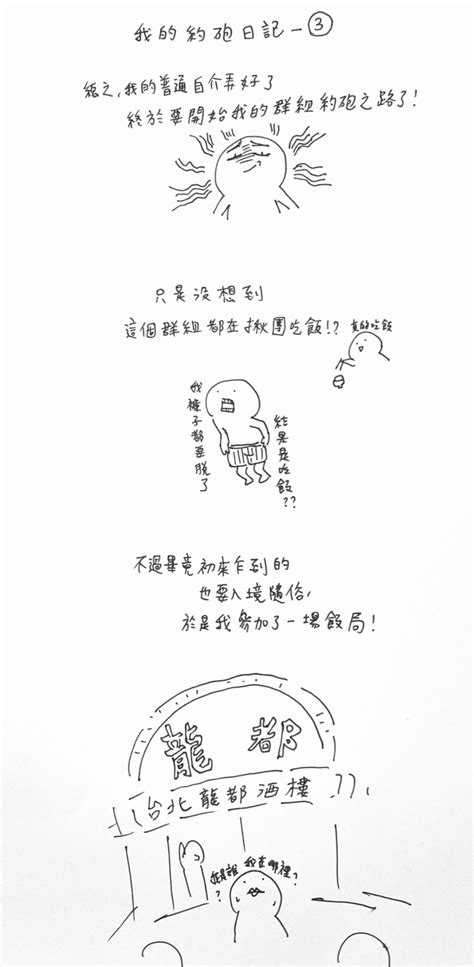 我的約砲日記-③
總之,我的普通自介弄好了
終於要開始我的群組約砲之路了!
只是沒想到
這個群組都在揪團吃飯!?
真的吃飯
我褲子都要脫了
結果是吃飯??
不過畢竟初來乍到的
也要入境隨俗,
於是我參加了一場飯局!
龍都
台北龍都酒樓
我是誰?
我在哪裡?